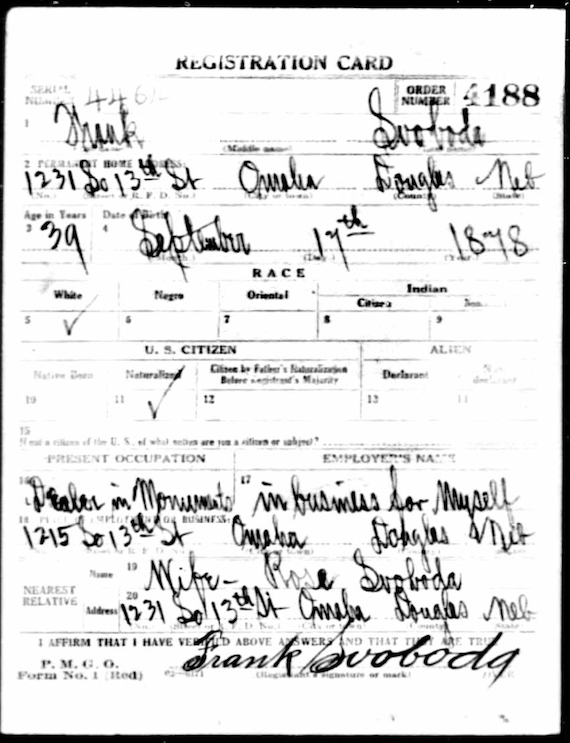 REGISTRATION CARD
SERIAL NUMBER 446 ORDER NUMBER 4188
1 Frank Svoboda
(Middle name)
2 PERMANENT HOME ADDRESS:
1231 So 13th St Omaha Douglas Neb
(No.) (Street or R. F. D. No.) (City or town) (County) (State)
Age in Years Date of Birth
3 39 4 September 17th 1878
(Month.) (Day.) (Year.)
RACE
White Negro Oriental Indian
Citizen Non-
5 ✓ 6 7 8 9
U. S. CITIZEN ALIEN
Native Born Naturalized Citizen by Father's Naturalization Before Registrant's Majority Declarant Non-declarant
10 11 ✓ 12 13 14
15
If not a citizen of the U. S., of what nation are you a citizen or subject?
PRESENT OCCUPATION EMPLOYER'S NAME
16 Dealer in Monuments 17 in business for Myself
18 PLACE OF EMPLOYMENT OR BUSINESS:
1215 So 13th St Omaha Douglas Neb
NEAREST RELATIVE Name 19 Wife - Rose Svoboda
Address 20 1231 So 13th St Omaha Douglas Neb
(No.) (Street or R. F. D. No.) (City or town) (County) (State)
I AFFIRM THAT I HAVE VERIFIED ABOVE ANSWERS AND THAT THEY ARE TRUE
P. M. G. O.
Form No. 1 (Red) Frank Svoboda
(Registrant's signature or mark) (OVER)